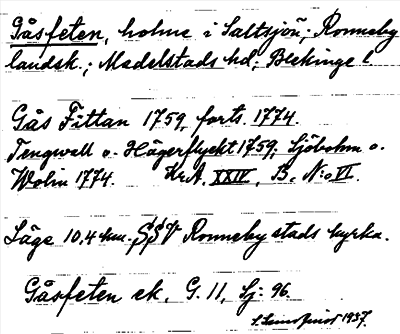 Gåsfeten, holme i Saltsjön; Ronneby
landsk.; Medelstads hd; Blekinge l.
Gås Fittan 1759, forts. 1774.
Tengwall o. Hägerflyckt 1759; Sjöbohm o.
Wolin 1774. Kr.A. XXIV, B, N:o VI.
Läge 10,4 km. SSV Ronneby stads kyrka.
Gåsfeten ek. G. 11, Sj: 96.
1937.